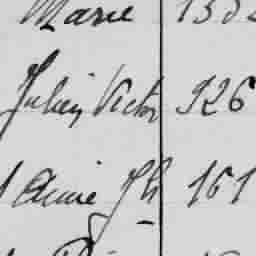 Marie 138
Julien Victor 926
Anne Jh 161